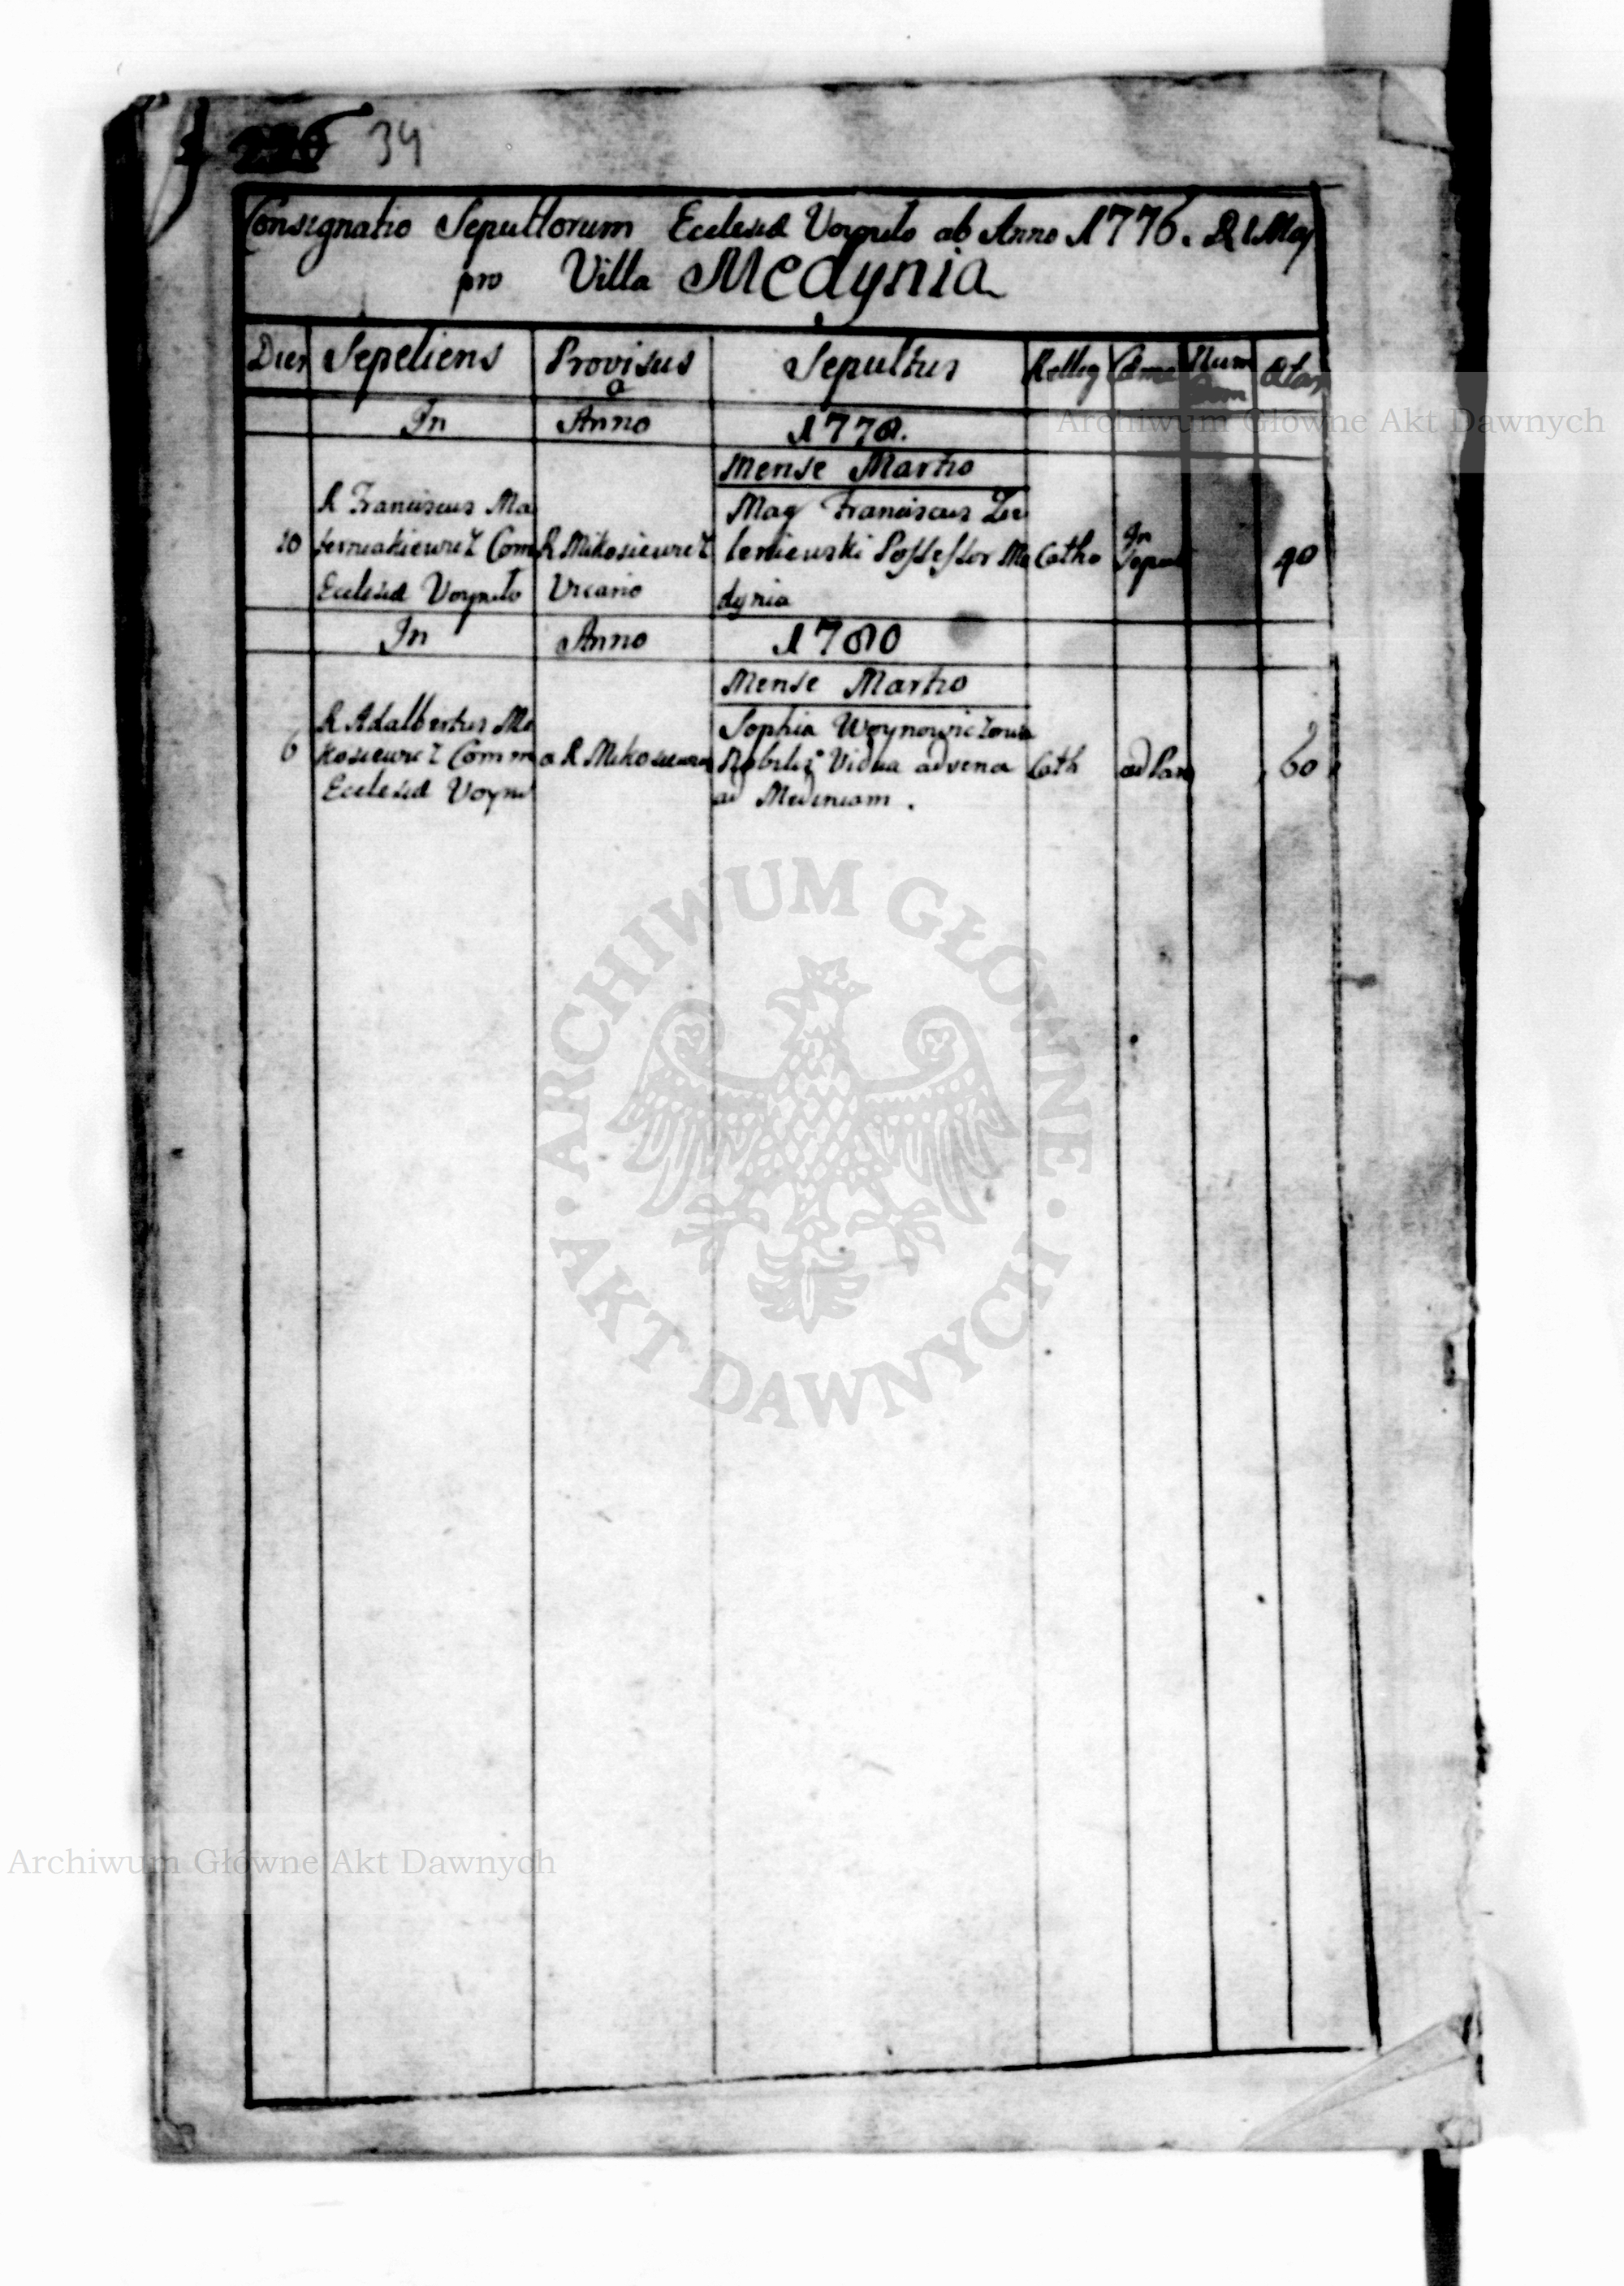 34
Consignatio Sepultorum Ecclesiæ Voynilo ab Anno 1776. D 1 May
pro Villa Medynia
Dies Sepeliens Provisus a Sepultus Rellig Coeme Num Aetas
In Anno 1778.
Mense Martio
R Franciscus Ma
Mag Franciscus Zie
10 R Mikosiewicz leniewski Possessor Me Catho In Sepul 40
Ecclesiæ Voynilo Vicario dynia
In Anno 1780
Mense Martio
R Adalbertus Mi Sophia Woynowiczowa
6 kosiewicz Comm a R Mikosiewicz Nobilis Vidua advena Cath ad Par 60
Ecclesiæ Voyni ad Mediniam.
Archiwum Główne Akt Dawnych
ARCHIWUM GŁÓWNE · AKT DAWNYCH ·
Archiwum Główne Akt Dawnych